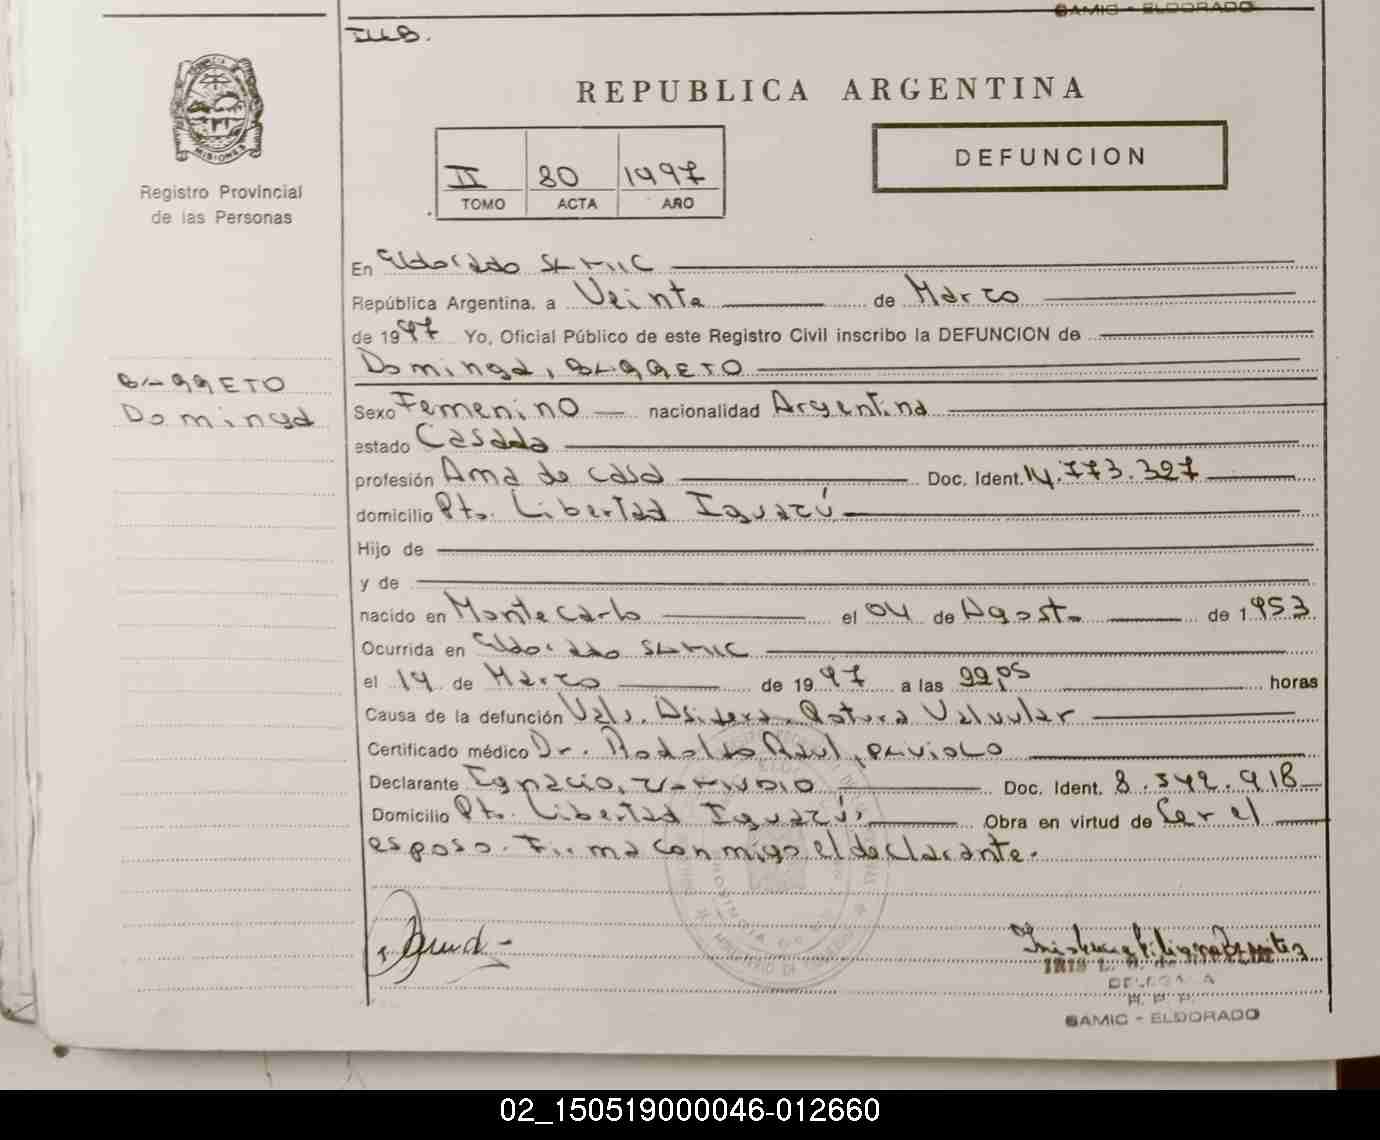 SAMIC - ELDORADO
REPUBLICA ARGENTINA
MISIONES
Registro Provincial
de las Personas
II 80 1997
TOMO ACTA AÑO
DEFUNCION
En Eldorado SAMIC
República Argentina, a Veinte de Marzo
de 1997 Yo, Oficial Público de este Registro Civil inscribo la DEFUNCION de
Dominga, BARRETO
BARRETO
Dominga
Sexo Femenino nacionalidad Argentina
estado Casada
profesión Ama de casa Doc. Ident. 14.773.327
domicilio Pto. Libertad Iguazú
Hijo de
y de
nacido en Montecarlo el 04 de Agosto de 1953
Ocurrida en Eldorado SAMIC
el 14 de Marzo de 1997 a las 22,05 horas
Causa de la defunción Rotura Valvular
Certificado médico Dr. Rodolfo Raul,
Declarante Ignacio, Doc. Ident. 8.542.918
Domicilio Pto. Libertad Iguazú, Obra en virtud de Ser el
esposo. Firma conmigo el declarante.
IRIS L.
DELEGADA
R. P. P.
SAMIC - ELDORADO
02_150519000046-012660